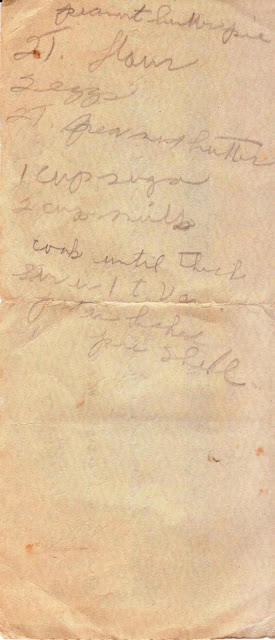 peanut butter pie
2T. flour
2 eggs
2T. peanut butter
1 cup suga
2 cup milk
cook until thick
stir in 1 t Va
put in baked
pie shell